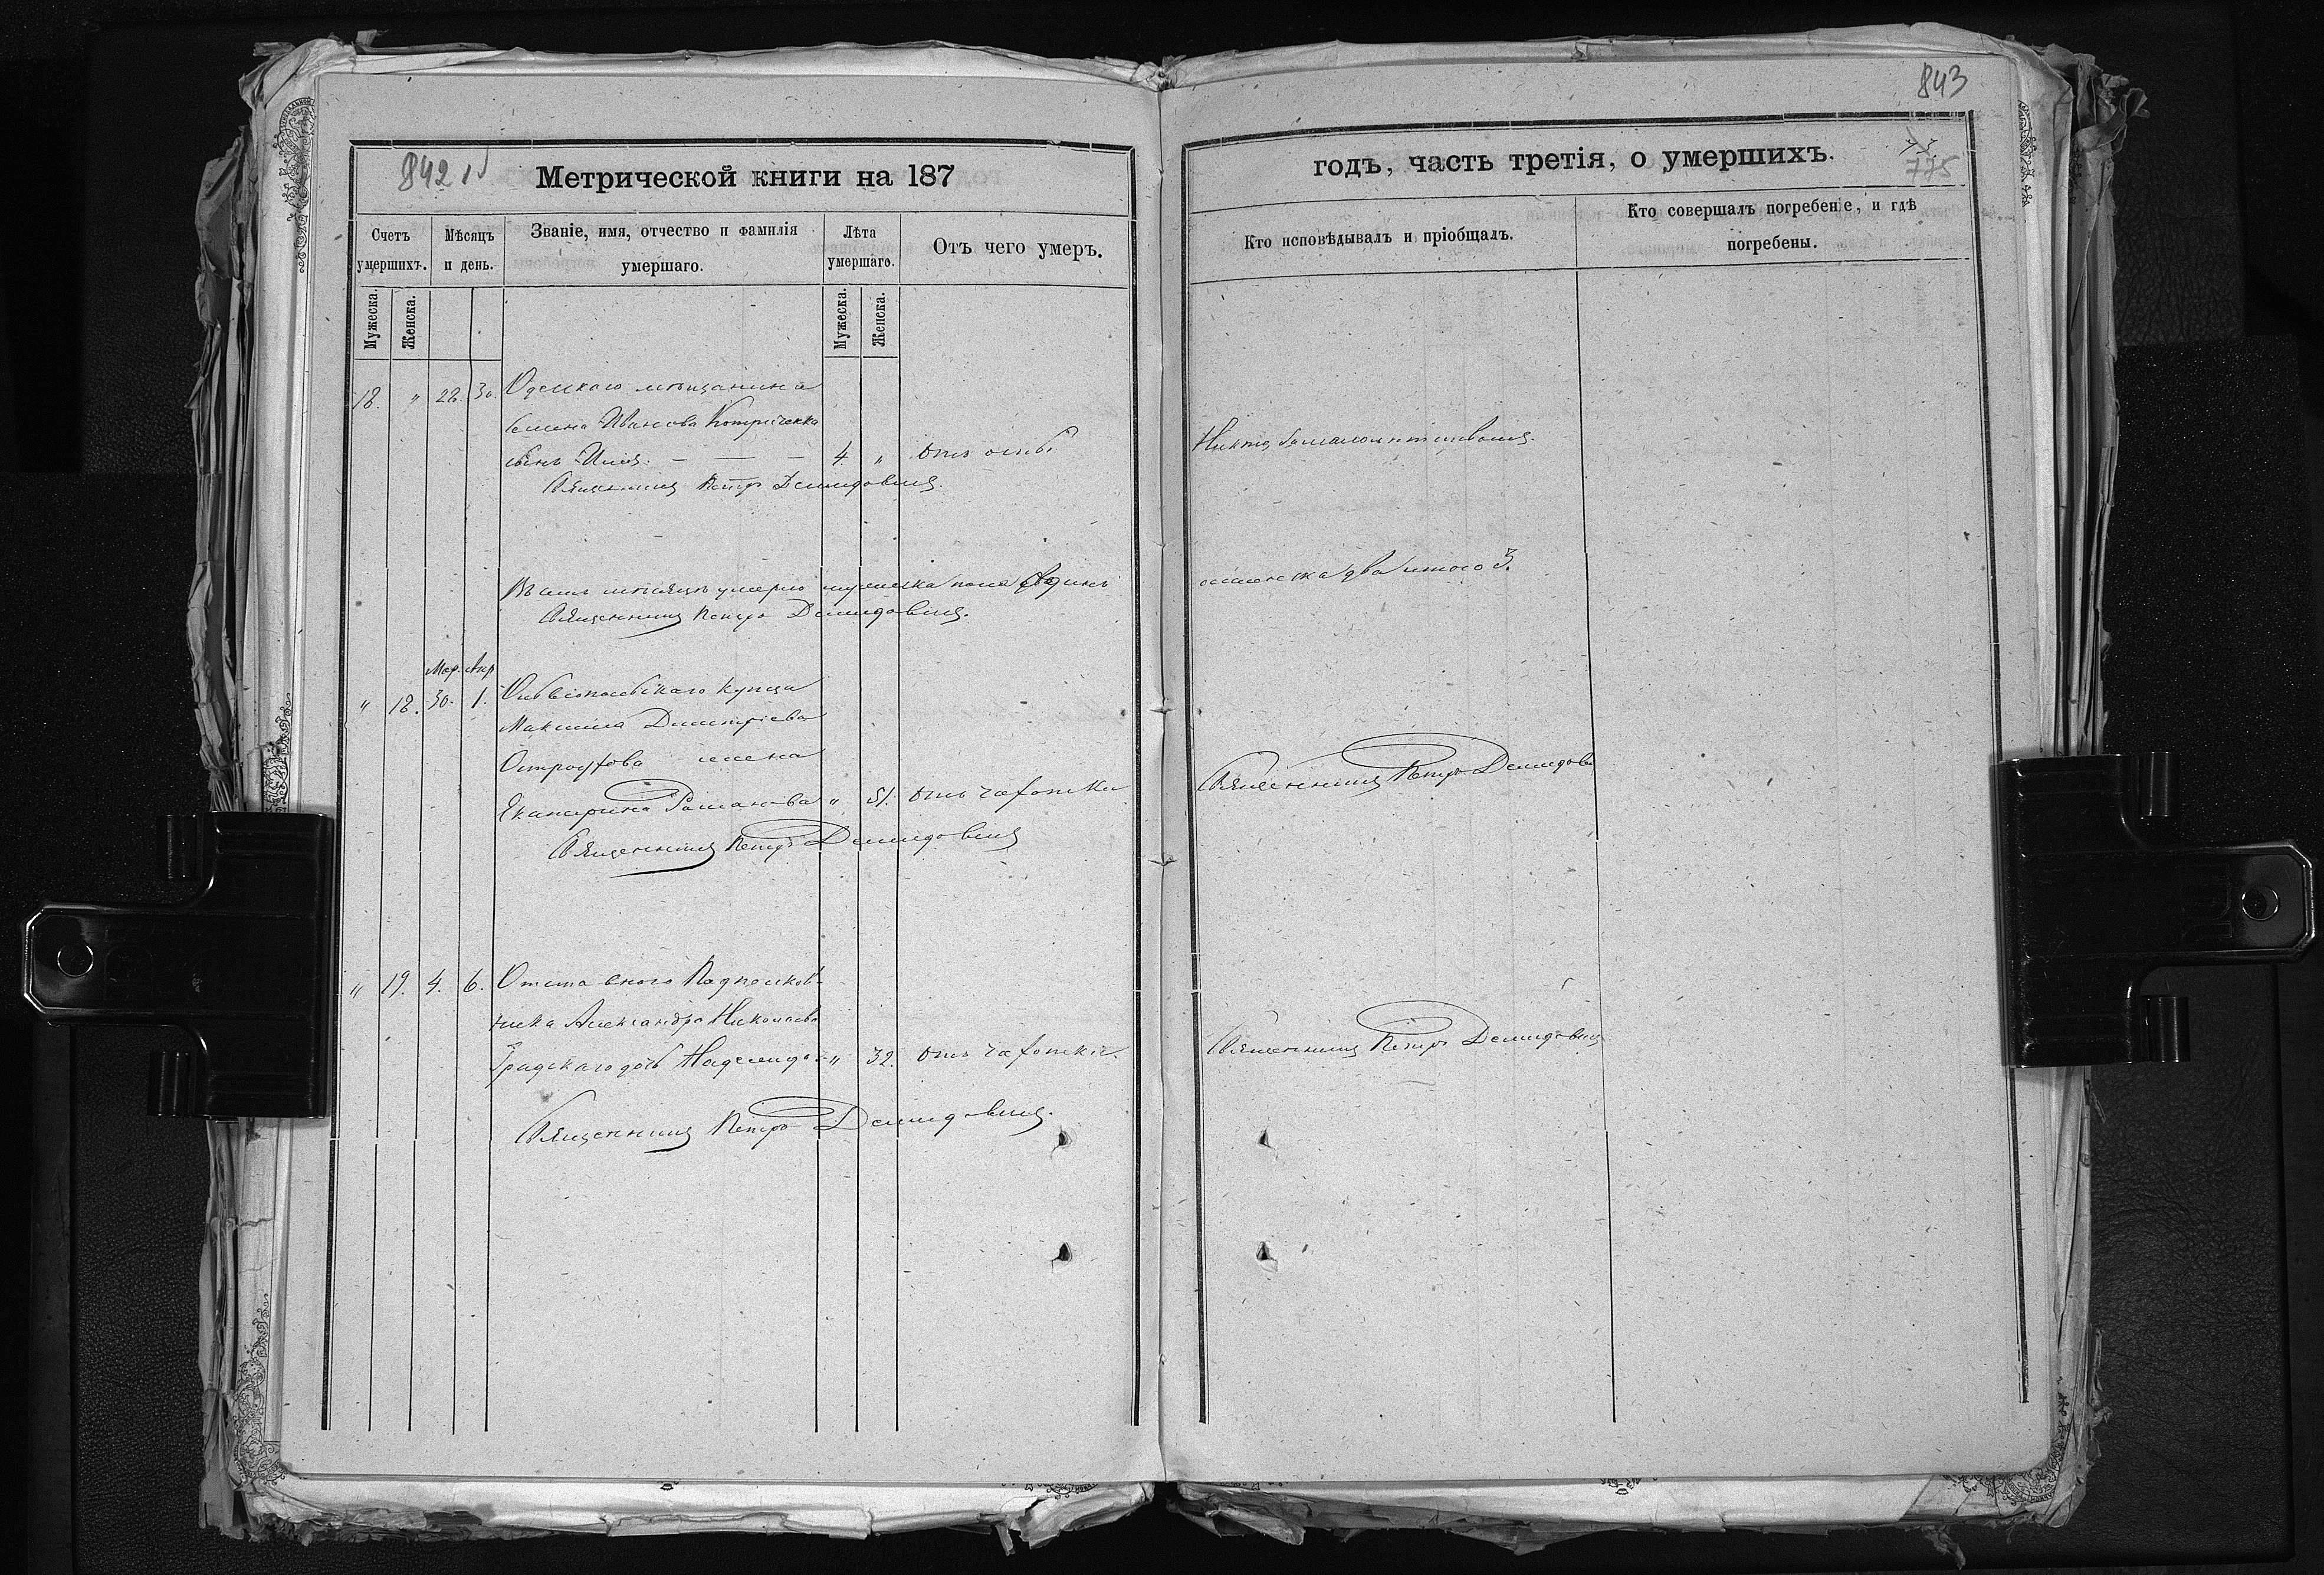 842
843
Метрической книги на 187
годъ, часть третія, о умершихъ.
775
Счетъ умершихъ.
Мѣсяцъ и день.
Званіе, имя, отчество и фамилія умершаго.
Лѣта умершаго.
Отъ чего умеръ.
Кто исповѣдывалъ и пріобщалъ.
Кто совершалъ погребеніе, и гдѣ погребены.
Мужеска.
Женска.
Мужеска.
Женска.
18. " 28. 30. Одесскаго мѣщанина
Семена Иванова
сынъ Илія. — — — 4. " отъ оспы
Священникъ Петръ Демидовичъ.
Никто, за малолѣтствомъ.
Въ семъ мѣсяцѣ умерло мужеска пола Одинъ
женска два итого 3.
Священникъ Петръ Демидовичъ.
Мар. Апр.
" 18. 30. 1. Ольвіопольскаго купца
Максима Димитріева
Остроухова жена
Екатерина Романова " 51. отъ чахотки
Священникъ Петръ Демидовичъ
Священникъ Петръ Демидов
" 19. 4. 6. Отставного Подполков-
ника Александра Николаева
дочь Надежда — " 32. отъ чахотки.
Священникъ Петръ Демидовичъ
Священникъ Петръ Демидовичъ.